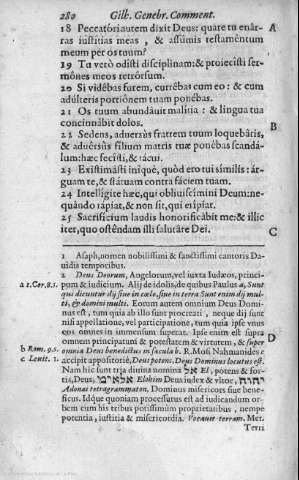 280 Gilb. Genebr. Comment.
18 Peccatóri autem dixit Deus: quare tu enár-
ras iustitias meas, & assúmis testaméntum
meum per os tuum?
A
19 Tu verò odisti disciplinam: & proiecisti ser-
mónes meos retrórsum.
20 Si vidébas furem, currébas cum eo: & cum
adúlteris portiónem tuam ponébas.
21 Os tuum abundáuit malitia: & lingua tua
concinnábit dolos.
B
22 Sedens, aduersùs fratrem tuum loquebáris,
& aduérsùs filium matris tuæ ponébas scanda-
lum: hæc fecisti, & tácui.
23 Existimásti iníquè, quòd ero tui similis: ár-
guam te, & státuam contra fáciem tuam.
24 Intelligite hæc, qui obliuiscimini Deum: ne-
quándo rápiat, & non sit, qui erípiat.
25 Sacrificium laudis honorificábit me: & illic
iter, quo osténdam illi salutáre Dei.
C
1 Asaph, nomen nobilissimi & sanctissimi cantoris Da-
uidis temporibus.
2 Deus Deorum, Angelorum, vel iuxta Iudæos, princi-
a 1.Cor.8.5. pum & iudicium. Alij de idolis, de quibus Paulus a, Sunt
qui dicuntur dij siue in cœlo, siue in terra sunt enim dij mul-
ti, & domini multi. Eorum autem omnium Deus Domi-
nus est, tum quia ab illo sunt procreati, neque dij sunt
nisi appellatione, vel participatione, tum quia ipse vnus
eos omnes in immensum superat. Ipse enim est supra
omnem principatum & potestatem & virtutem, & super
D
b Rom. 9.5. omnia Deus benedictus in sæcula b. R. Mosi Nahmanides c
c Leuit. 1. accipit appositoriè, Deus potens, Deus Dominus locutus est.
Nam hic sunt tria diuina nomina אל El, potens & for-
tis, Deus, אלהים Elohim Deus iudex & vltor, יהוה,
Adonai tetragrammaton, Dominus misericors siue bene-
ficus. Idque quoniam processurus est ad iudicandum or-
bem cum his tribus potissimùm proprietatibus, nempe
potentia, iustitia & misericordia. Vocauit terram. Met.
Terri